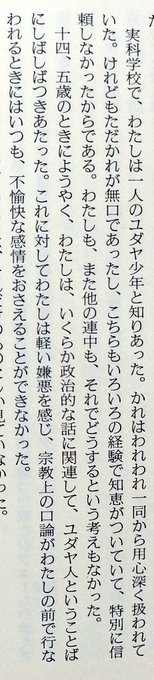 実科学校で、わたしは一人のユダヤ少年と知りあった。かれはわれわれ一同から用心深く扱われて
いた。けれどもただかれが無口であったし、こちらもいろいろの経験で知恵がついていて、特別に信
頼しなかったからである。わたしも、また他の連中も、それでどうするという考えもなかった。
十四、五歳のときにようやく、わたしは、いくらか政治的な話に関連して、ユダヤ人ということば
にしばしばつきあたった。これに対してわたしは軽い嫌悪を感じ、宗教上の口論がわたしの前で行な
われるときにはいつも、不愉快な感情をおさえることができなかった。